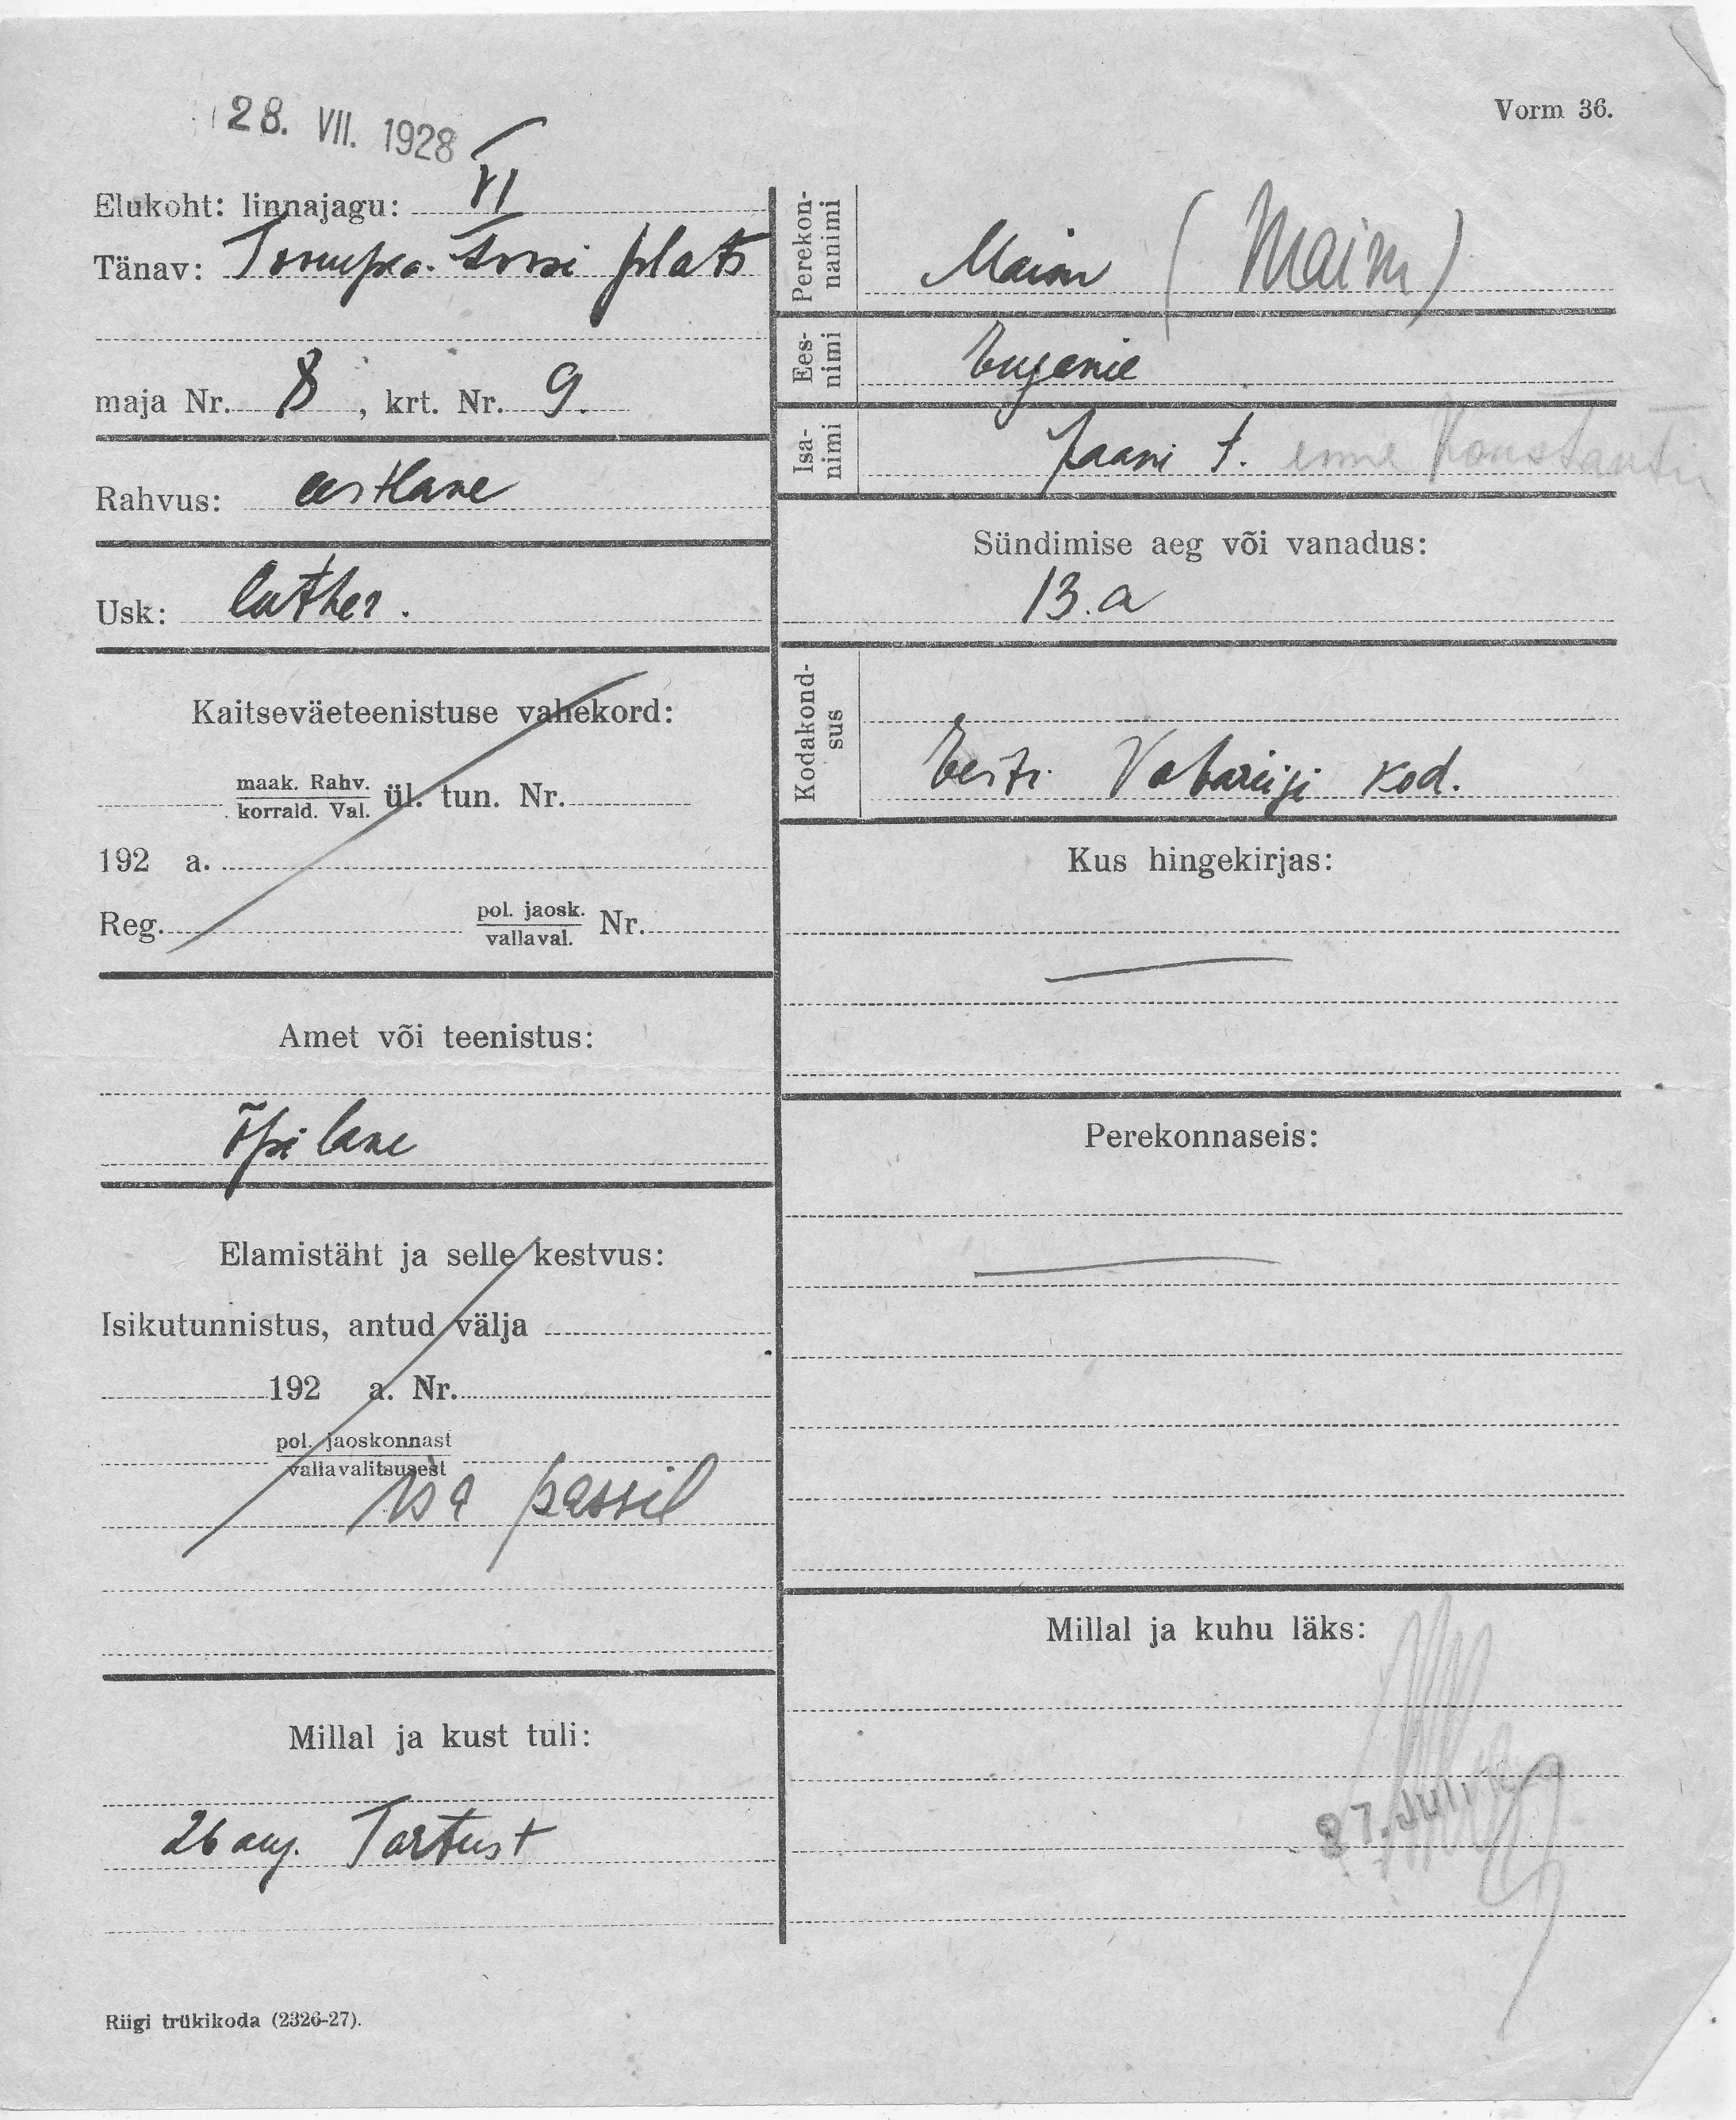 28. VII. 1928
Vorm 36.
Elukoht: linnajagu: VI
Tänav: Toompea-
plats
maja Nr. 8, krt. Nr. 9.
Rahvus: eestlane
Usk: luther.
Kaitseväeteenistuse vahekord:
maak. Rahv.
korrald. Val. ül. tun. Nr.
192 a.
Reg. pol. jaosk.
vallaval. Nr.
Amet või teenistus:
õpilane
Elamistäht ja selle kestvus:
Isikutunnistus, antud välja
192 a. Nr.
pol. jaoskonnast
vallavalitsusest
isa passil
Millal ja kust tuli:
26 aug. Tartust
Riigi trükikoda (2326-27).
Perekon-
nanimi Maim (Maim)
Ees-
nimi Eugenie
Isa-
nimi Jaani t. enne Konstantin
Sündimise aeg või vanadus:
13.a
Kodakond-
sus
Eesti Vabariigi kod.
Kus hingekirjas:
Perekonnaseis:
Millal ja kuhu läks:
27. Juuli